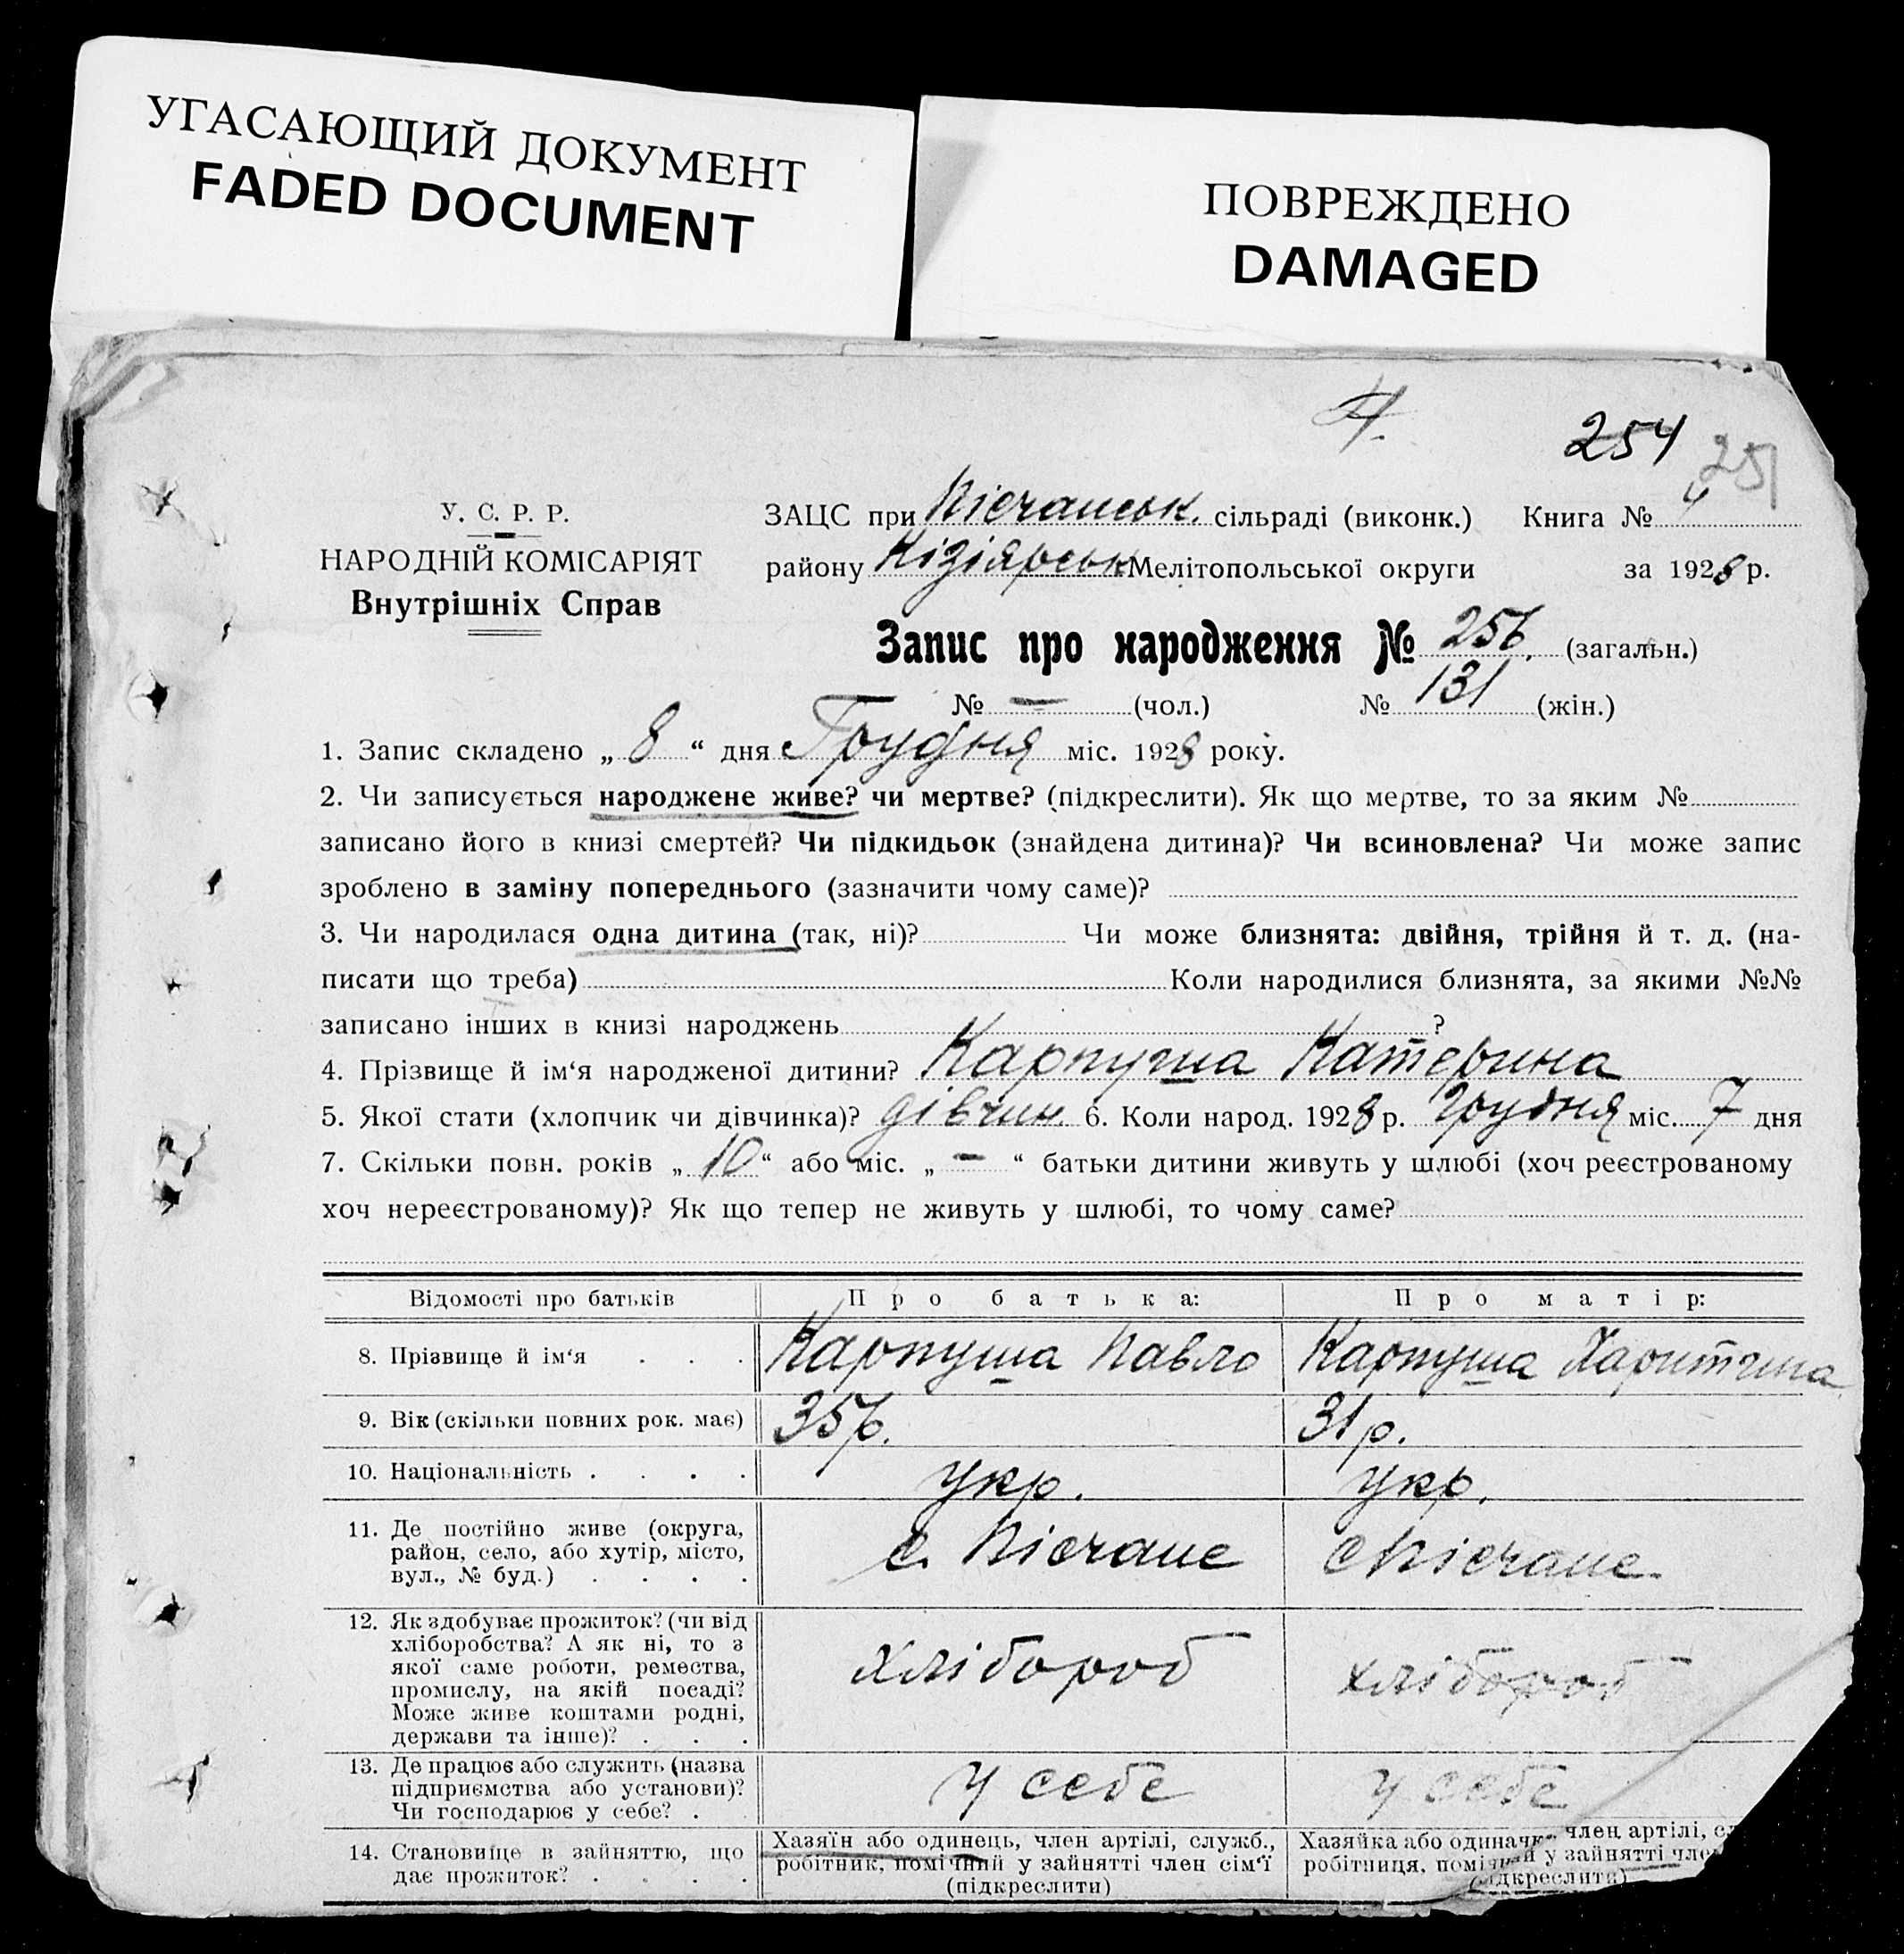 УГАСАЮЩИЙ ДОКУМЕНТ
FADED DOCUMENT
ПОВРЕЖДЕНО
DAMAGED
254 251
У. С. Р. Р.
НАРОДНІЙ КОМІСАРІЯТ
Внутрішніх Справ
ЗАЦС при Пісчанськ. сільраді (виконк.) Книга № 4
району Кізіярськ Мелітопольської округи за 1928 р.
Запис про народження № 256. (загальн.)
№ — (чол.) № 131 (жін.)
1. Запис складено „ 8 “ дня Грудня міс. 1928 року.
2. Чи записується народжене живе? чи мертве? (підкреслити). Як що мертве, то за яким №
записано його в книзі смертей? Чи підкидьок (знайдена дитина)? Чи всиновлена? Чи може запис
зроблено в заміну попереднього (зазначити чому саме)?
3. Чи народилася одна дитина (так, ні)? Чи може близнята: двійня, трійня й т. д. (на-
писати що треба) Коли народилися близнята, за якими №№
записано інших в книзі народжень ?
4. Прізвище й ім‘я народженої дитини? Карпуша Катерина
5. Якої стати (хлопчик чи дівчинка)? дівчин. 6. Коли народ. 1928 р. Грудня міс. 7 дня
7. Скільки повн. років „ 10 “ або міс. „ — “ батьки дитини живуть у шлюбі (хоч реєстрованому
хоч нереєстрованому)? Як що тепер не живуть у шлюбі, то чому саме?
Відомості про батьків Про батька: Про матір:
8. Прізвище й ім‘я . . . Карпуша Павло Карпуша Харитина
9. Вік (скільки повних рок. має) 35р. 31р.
10. Національність . . . . укр. укр.
11. Де постійно живе (округа,
район, село, або хутір, місто,
вул., № буд.) . . . .
с. Пісчане с Пісчане.
12. Як здобуває прожиток? (чи від
хліборобства? А як ні, то з
якої саме роботи, ремества,
промислу, на якій посаді?
Може живе коштами родні,
держави та інше)? . . .
хлібороб хлібороб
13. Де працює або служить (назва
підприємства або установи)?
Чи господарює у себе? .
у себе у себе
14. Становище в зайняттю, що
дає прожиток? . . . .
Хазяїн або одинець, член артілі, служб.,
робітник, помічний у зайнятті член сім‘ї
(підкреслити)
Хазяйка або одиначк член артілі,
робітниця, у зайнятті